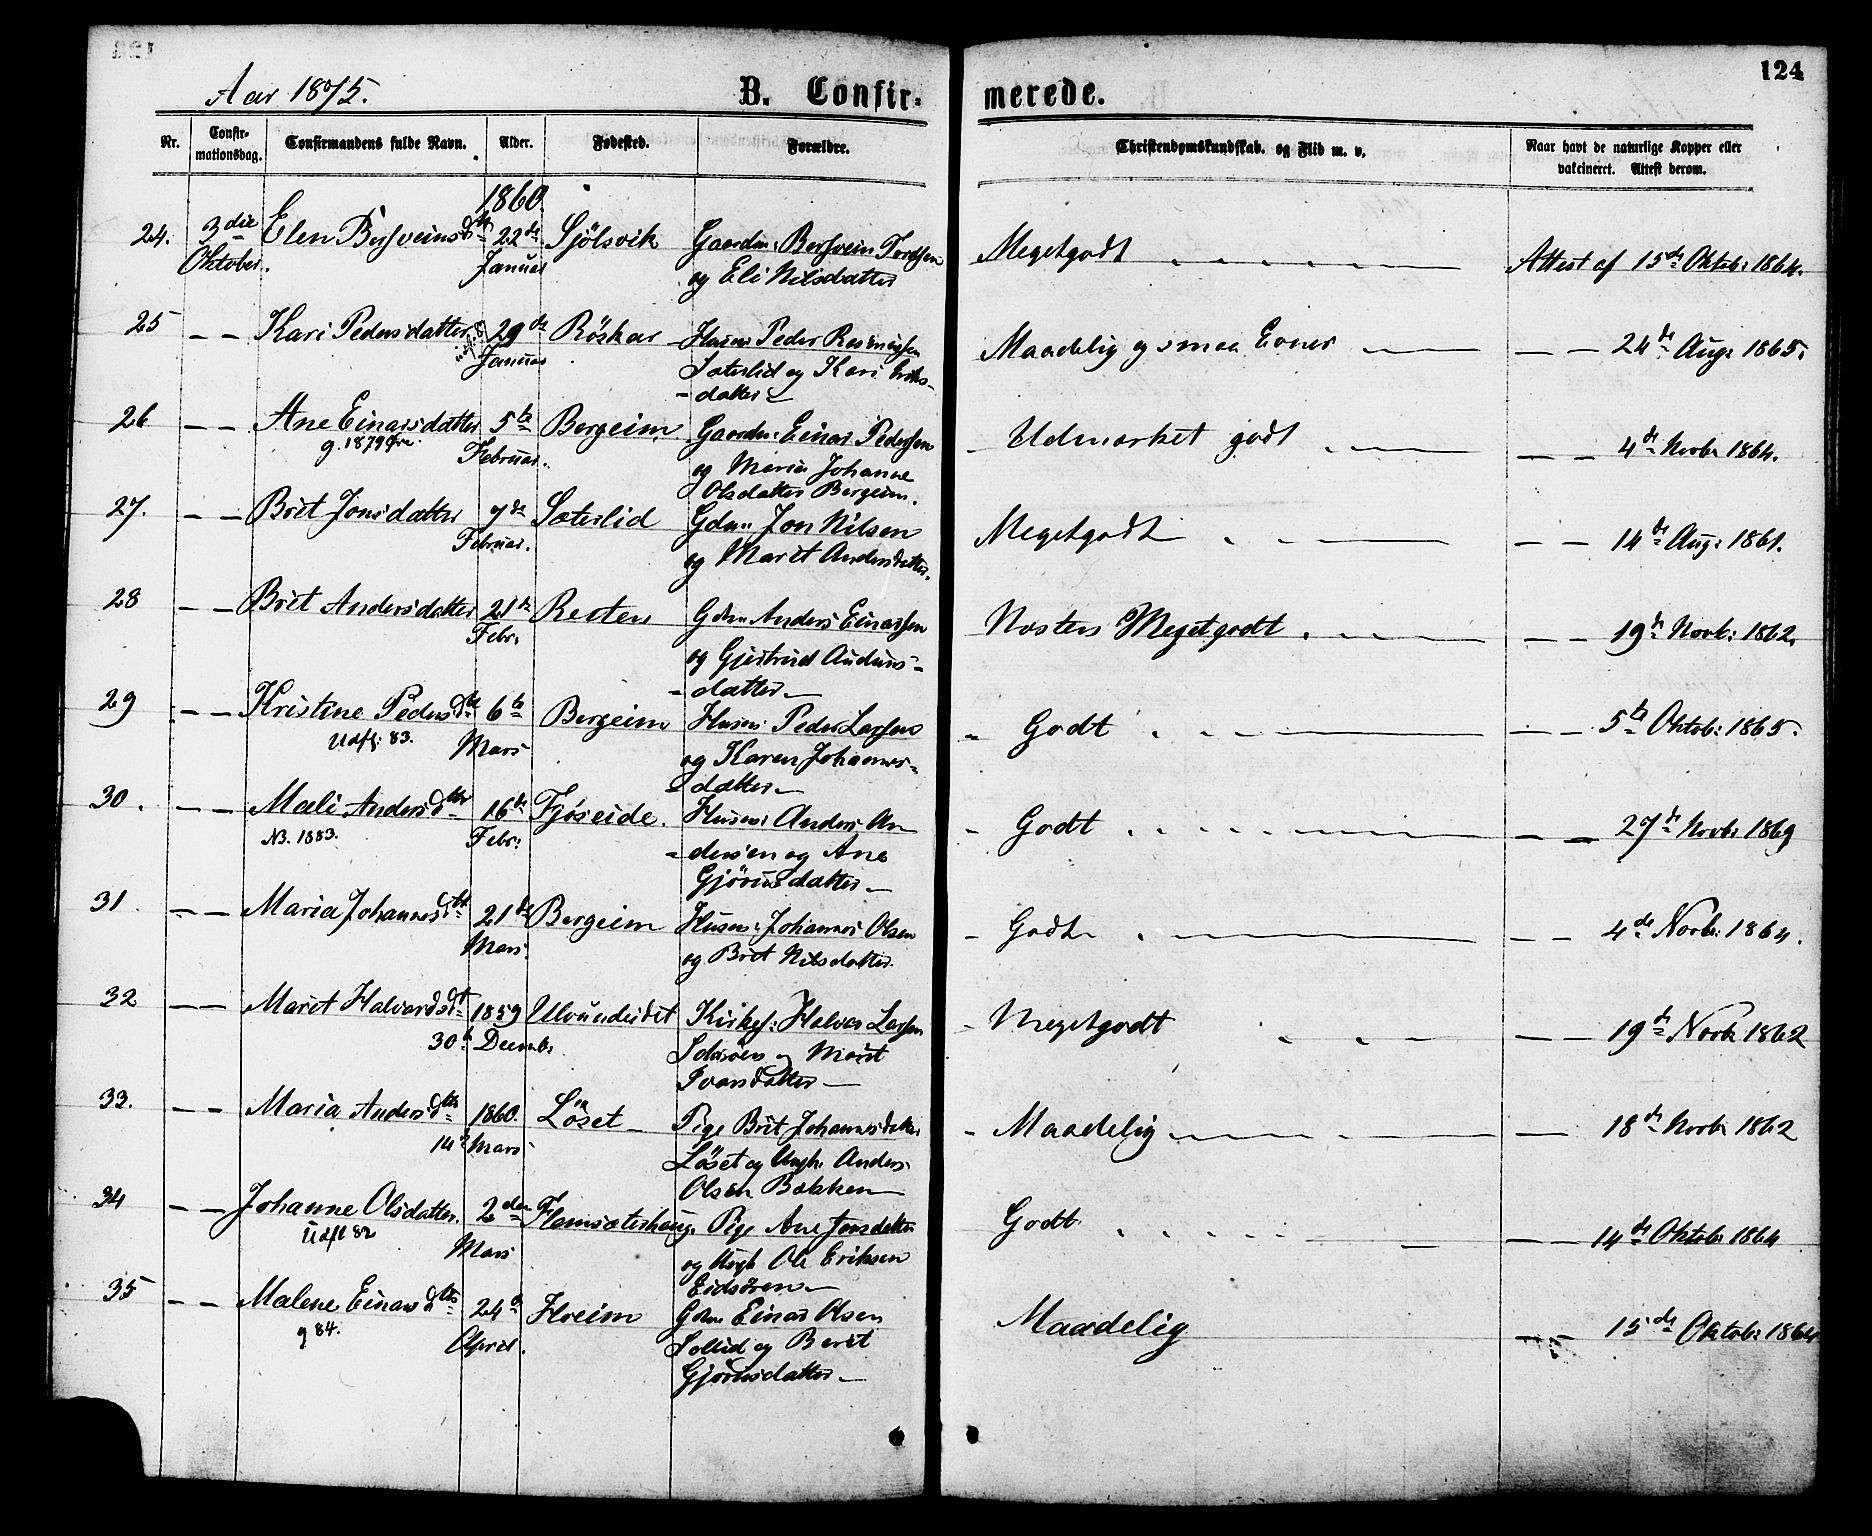 124
Aar 1875. B. Confir= merede.
Nr. Confir-mationsdag. Confirmandens fulde Navn. Alder. Fødested. Forældre. Christendomskundskab. og Flid m. v. Naar havt de naturlige Kopper eller vakcineret. Attest derom.
1860.
24. 3die Elen Bersveinsdtr 22de Sjölsvik Gaardm: Bersvein Tordsen Megetgodt Attest af 15de Oktob: 1864.
Oktober. Januar og Eli Nilsdatter
25 – – Kari Pedersdatter 29de Röskar Husm: Peder Rasmussen Maadelig og smaa Evner – – 24de Aug: 1865.
Januar Sæterlid og Kari Eriks-
-datter
26 – – Ane Einarsdatter 5te Bergeim Gaardm: Einar Pedersen Udmærket godt – – 4de Novb 1864.
g. 1879 Februar. og Maria Johanne
Olsdatter Bergeim.
27. – – Brit Jonsdatter 7de Sæterlid Gdm Jon Nilsen Megetgodt – – 14de Aug: 1861.
Februar. og Marit Andersdatter.
28 – – Brit Andersdatter 21de Reiten Gdm Anders Einarsen Næsten Megetgodt – – 19de Novb: 1862.
Febr: og Gjertrud Auduns-
-datter
29 – – Kristine Pedersdtr 6te Bergeim Husm: Peder Larsen Godt – – 5te Oktob: 1865.
Udfl: 83. Mars og Karen Johannes-
datter
30. – – Mali Andersdtr 16de Fjøseide. Husm: Anders An- Godt – – 27de Novb: 1869
N3. 1883. Febr: -dersen og Ane
Gjörinsdatter
31. – – Maria Johannesdtr 21de Bergeim Husm: Johannes Olsen Godt – – 4de Novb: 1864.
Mars. og Brit Nilsdatter.
32 – – Marit Halvardsdtr 1859 Ulvundeidet Kirkes: Halvor Larsen Megetgodt – – 19de Novb 1862
30te Decemb: og Marit
Ivarsdatter
33. – – Maria Andersdtr 1860. Löset Pige Brit Johannesdatter Maadelig – – 18de Novb 1862
14de Mars Löset og Ungk. Anders
Olsen Bakken
34 – – Johanne Olsdatter. 2den Flemsæterhaug. Pige Ane Jonsdatter Godt – – 14de Oktob: 1864
Udfl 82 Mars og Ungk Ole Eriksen
Eidsören
35 – – Malene Einarsdtr 24de Horeim Gdm Einar Olsen Maadelig – – 15de Oktob: 1864
g 84. April. Sollid og Berit
Gjörinsdatter